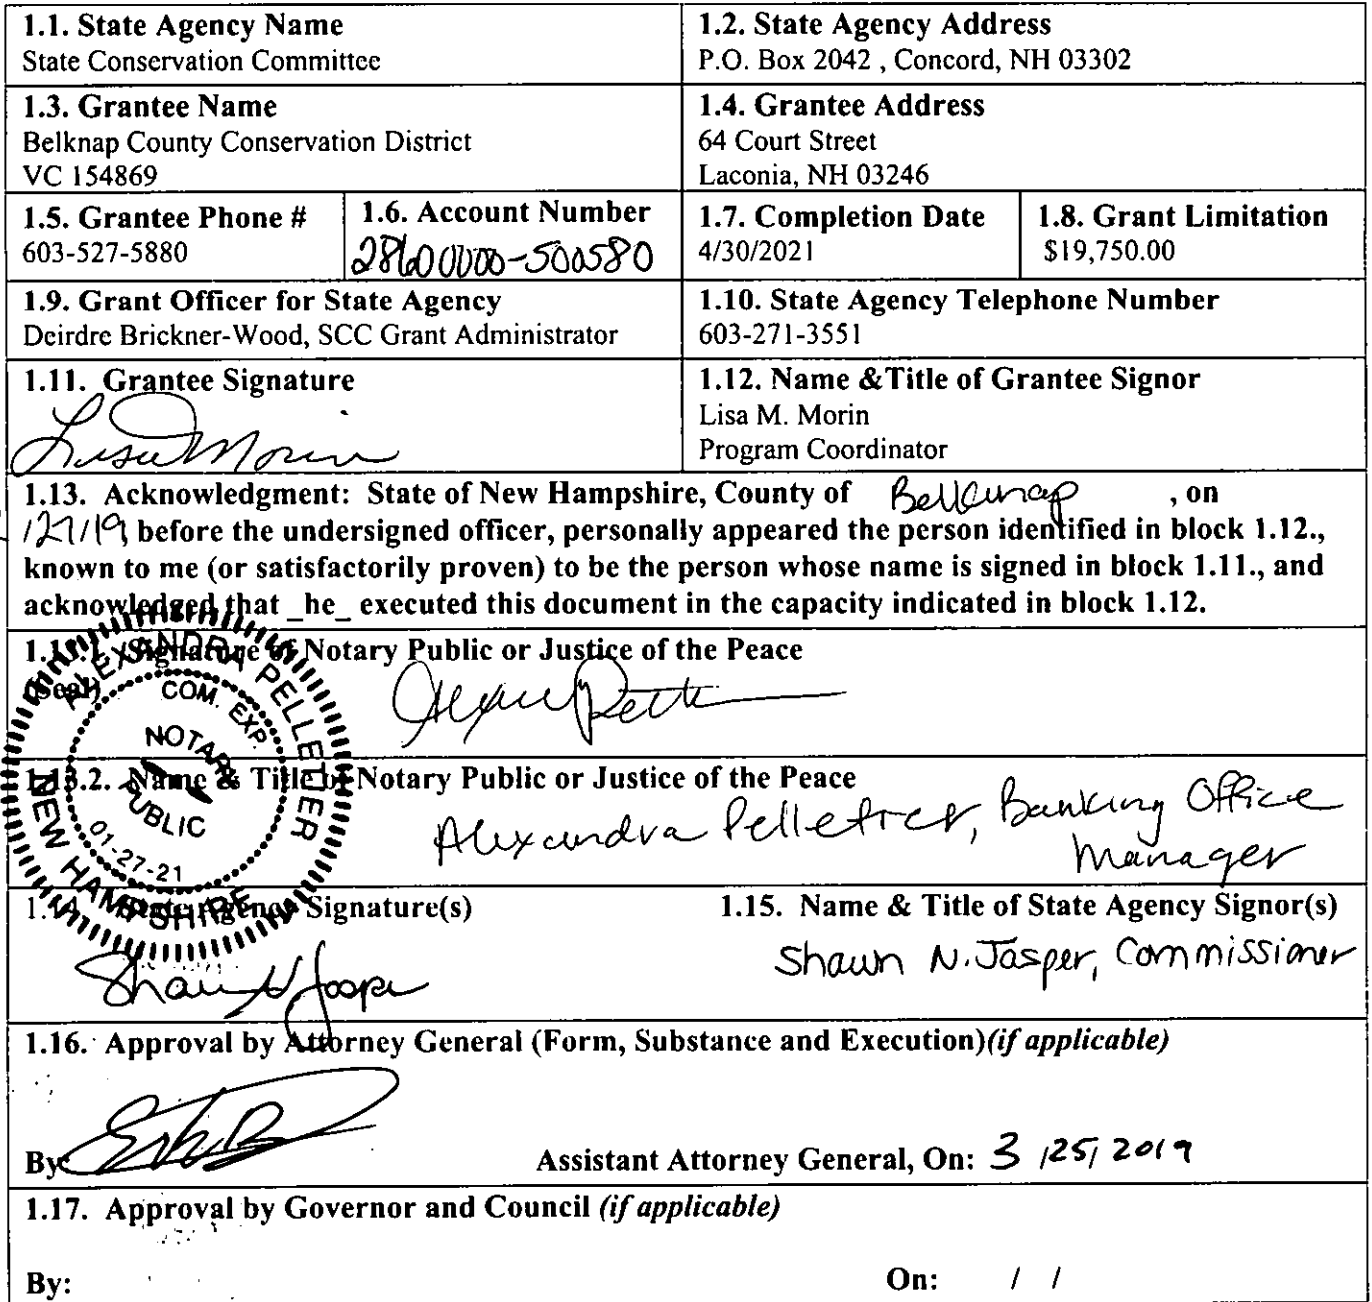 1.1. State Agency Name
State Conservation Committee
1.2. State Agency Address
P.O. Box 2042 , Concord, NH 03302
1.3. Grantee Name
Belknap County Conservation District
VC 154869
1.4. Grantee Address
64 Court Street
Laconia, NH 03246
1.5. Grantee Phone #
603-527-5880
1.6. Account Number
28600000-500580
1.7. Completion Date
4/30/2021
1.8. Grant Limitation
$19,750.00
1.9. Grant Officer for State Agency
Deirdre Brickner-Wood, SCC Grant Administrator
1.10. State Agency Telephone Number
603-271-3551
1.11. Grantee Signature
Lisa M Morin
1.12. Name &Title of Grantee Signor
Lisa M. Morin
Program Coordinator
1.13. Acknowledgment: State of New Hampshire, County of Belknap , on
/27/19 before the undersigned officer, personally appeared the person identified in block 1.12.,
known to me (or satisfactorily proven) to be the person whose name is signed in block 1.11., and
acknowledged that _he_ executed this document in the capacity indicated in block 1.12.
1.13.1. Signature of Notary Public or Justice of the Peace
(Seal)
ALEXANDRA PELLETIER
COM. EXP.
NOTARY
PUBLIC
01-27-21
NEW HAMPSHIRE
1.13.2. Name & Title of Notary Public or Justice of the Peace
Alexandra Pelletier, Banking Office
Manager
1.14. State Agency Signature(s)
Shawn N Jasper
1.15. Name & Title of State Agency Signor(s)
Shawn N. Jasper, Commissioner
1.16. Approval by Attorney General (Form, Substance and Execution)(if applicable)
By:
Assistant Attorney General, On: 3 /25/ 2019
1.17. Approval by Governor and Council (if applicable)
By:
On: / /